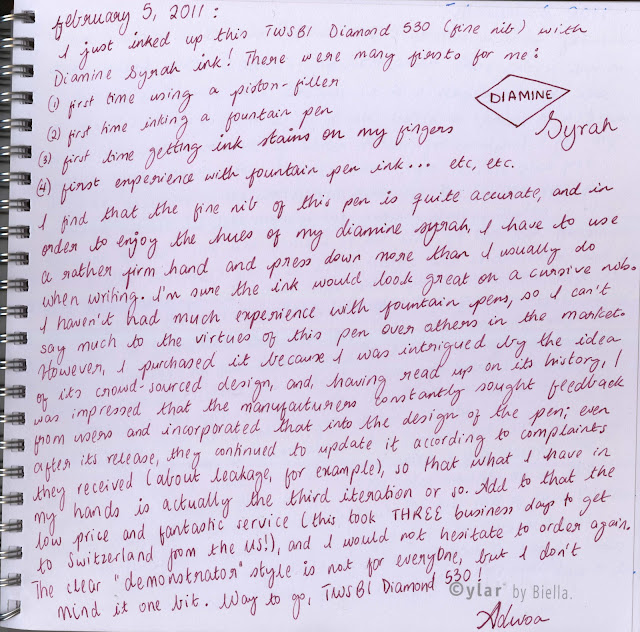 february 5, 2011:
I just inked up this TWSBI Diamond 530 (fine nib) with
Diamine Syrah ink! There were many firsts for me:
(1) first time using a piston-filler
(2) first time inking a fountain pen
DIAMINE
Syrah
(3) first time getting ink stains on my fingers
(4) first experience with fountain pen ink... etc, etc.
I find that the fine nib of this pen is quite accurate, and in
order to enjoy the hues of my diamine syrah, I have to use
a rather firm hand and press down more than I usually do
when writing. I'm sure the ink would look great on a cursive nib.
I haven't had much experience with fountain pens, so I can't
say much to the virtues of this pen over others in the market.
However, I purchased it because I was intrigued by the idea
of its crowd-sourced design, and, having read up on its history, I
was impressed that the manufacturers constantly sought feedback
from users and incorporated that into the design of the pen; even
after its release, they continued to update it according to complaints
they received (about leakage, for example), so that what I have in
my hands is actually the third iteration or so. Add to that the
low price and fantastic service (this took THREE business days to get
to Switzerland from the US!), and I would not hesitate to order again.
The clear "demonstrator" style is not for everyone, but I don't
mind it one bit. Way to go, TWSBI Diamond 530!
©ylar® by Biella.
Adwoa